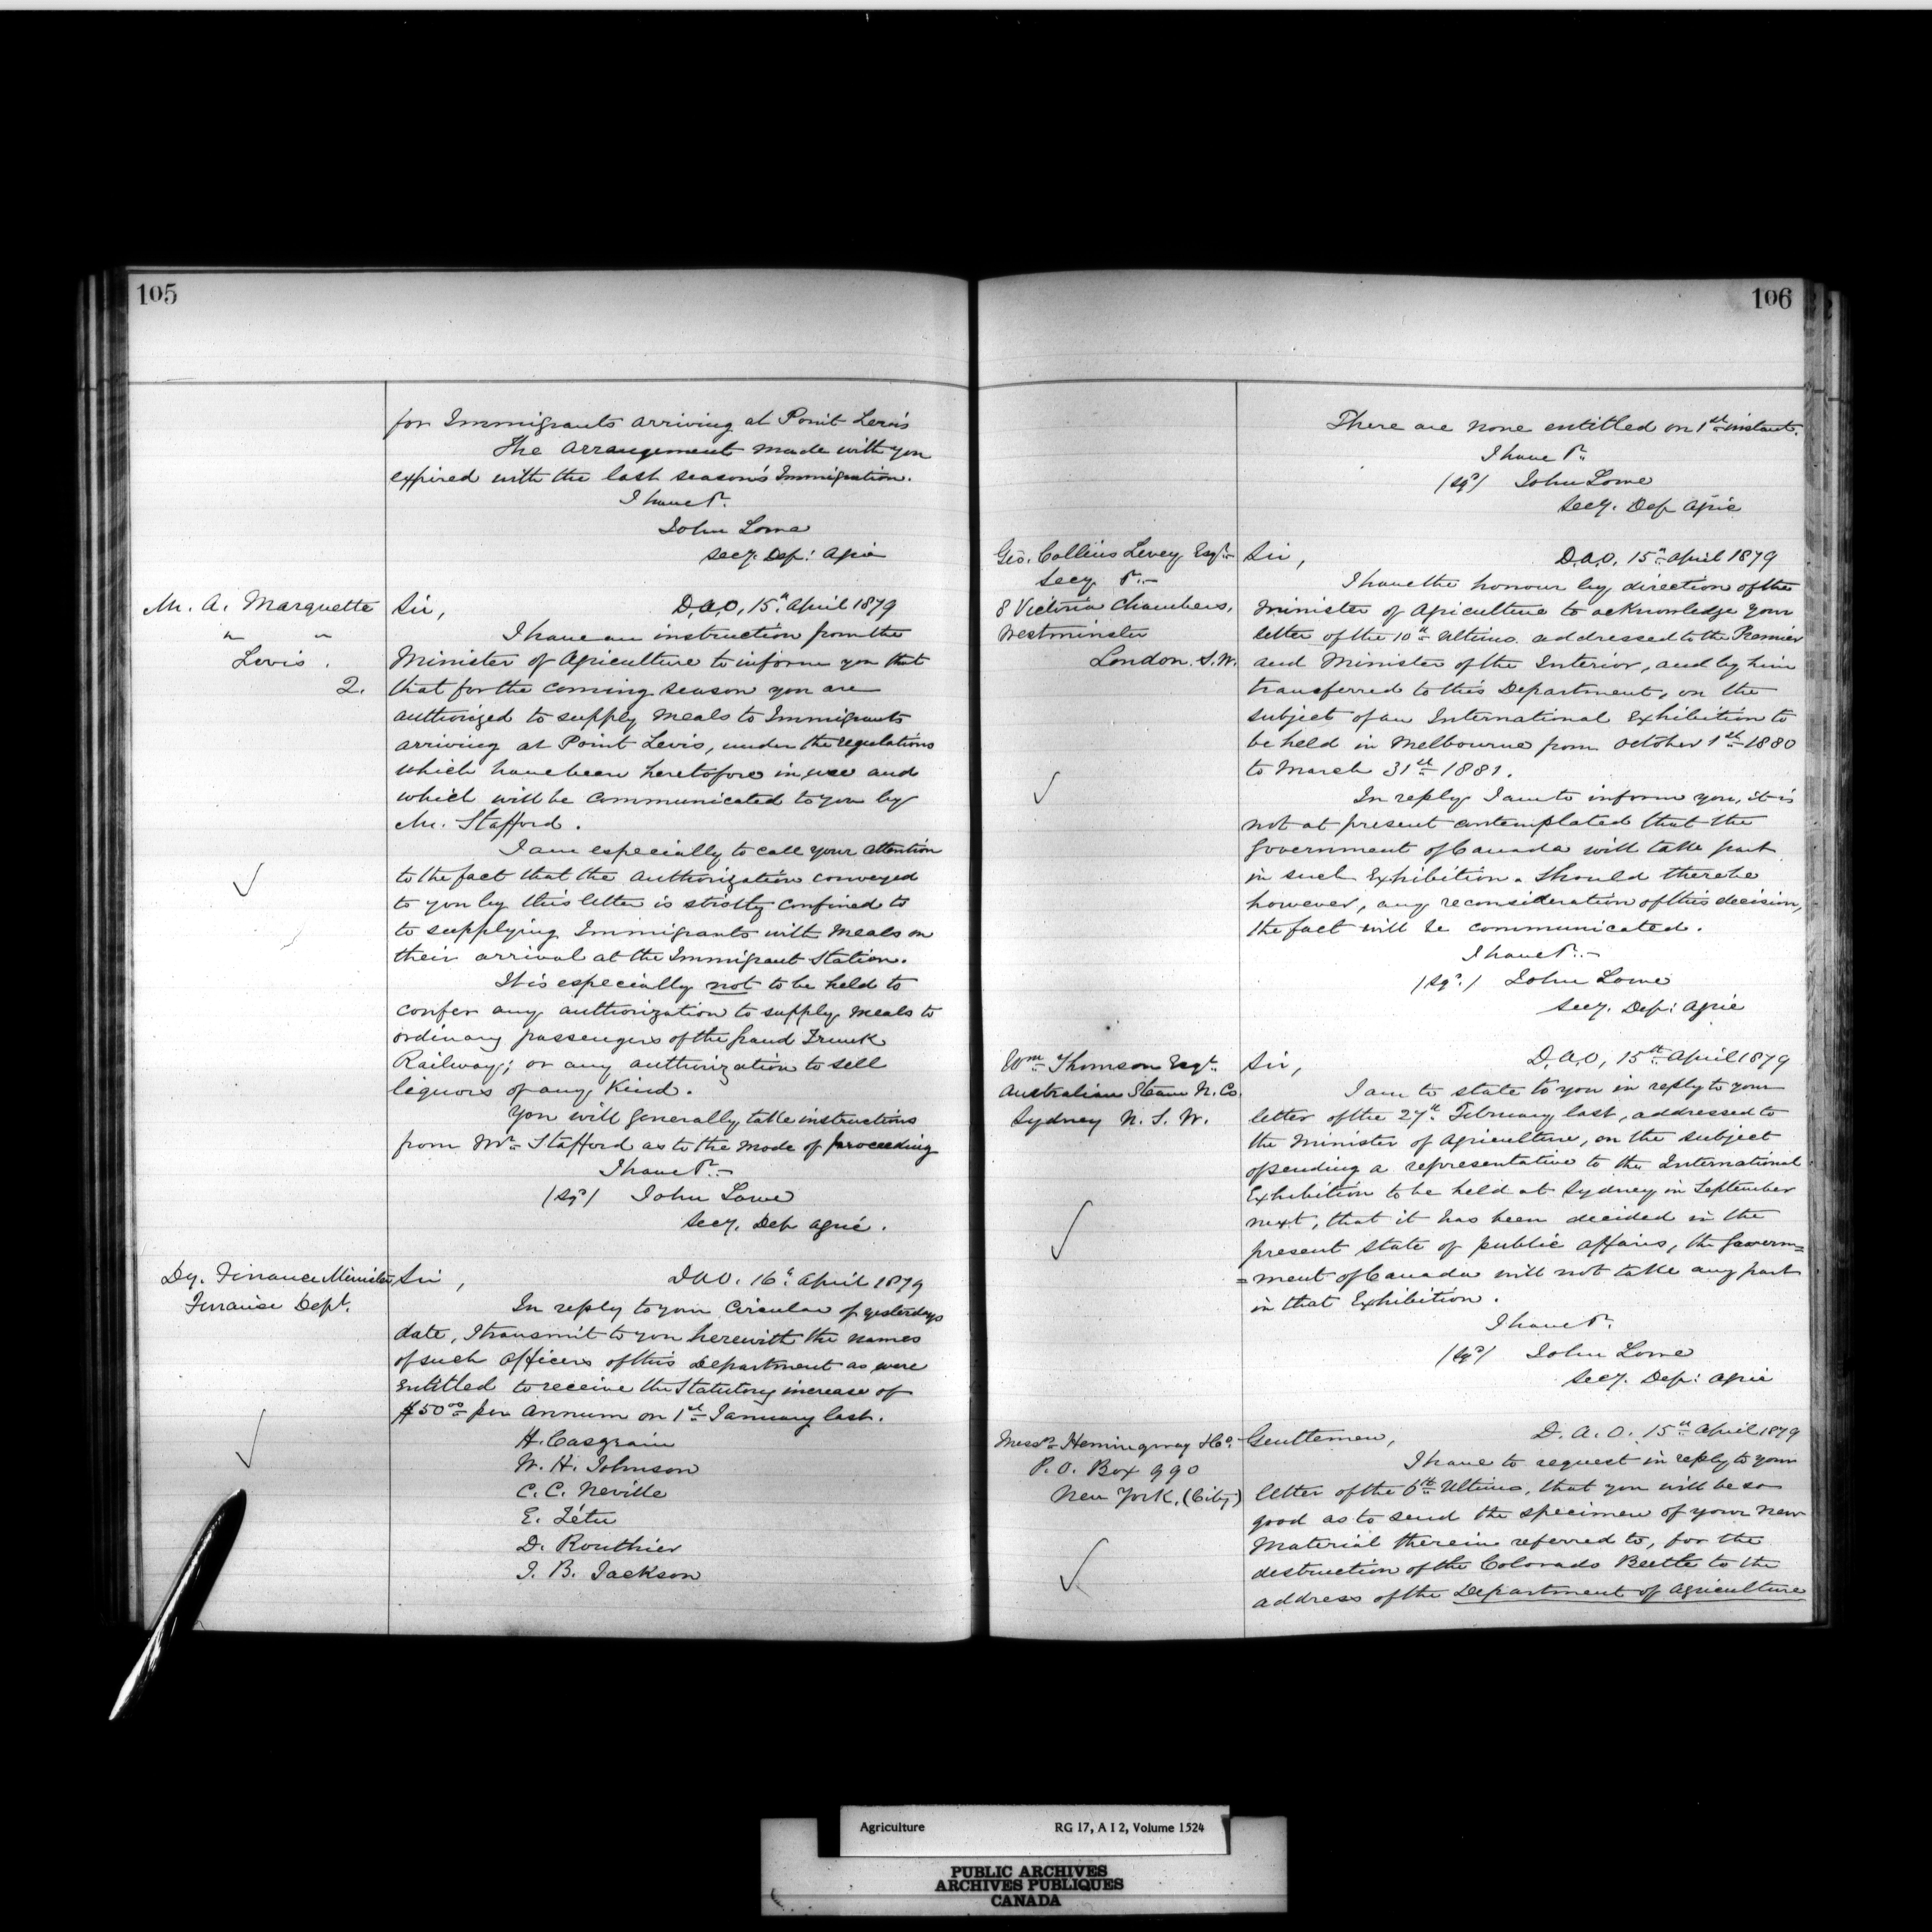 105
for Immigrants arriving at Point Levis
The arrangement made with you
expired with the last season's Immigration.
I have &c.
John Lowe
Secy. Dep: Agric
M. A. Marquette
" "
Levis.
2.
Sir,
D.A.O, 15th April 1879
I have an instruction from the
Minister of Agriculture to inform you that
that for the coming season you are
authorized to supply meals to Immigrants
arriving at Point Levis, under the regulations
which have been heretofore in use and
which will be communicated to you by
Mr. Stafford.
I am especially to call your attention
to the fact that the authorization conveyed
to you by this letter is strictly confined to
to supplying Immigrants with meals on
their arrival at the Immigrant Station.
It is especially not to be held to
confer any authorization to supply meals to
ordinary passengers of the Grand Trunk
Railway; or any authorization to sell
liquors of any Kind.
You will generally take instructions
from Mr Stafford as to the mode of proceeding
I have &c.
(sgd) John Lowe
Secy. Dep Agric.
Dy. Finance Minister
Finance Dept.
Sir,
D.A.O. 16th April 1879
In reply to your Circular of yesterdays
date, I transmit to you herewith the names
of such officers of this Department as were
entitled to receive the Statutory increase of
$50.00 per annum on 1st January last.
H. Casgrain
W. H. Johnson
C. C. Neville
E. Tétu
D. Routhier
J. B. Jackson
106
There are none entitled on 1st instant.
I have &c.
(sgd) John Lowe
Secy. Dep Agric
Geo. Collins Levey Esqr.
Secy &c.
8 Victoria Chambers,
Westminster
London. S.W.
Sir,
D.A.O. 15th April 1879
I have the honour by direction of the
Minister of Agriculture to acknowledge your
letter of the 10th Ultimo. addressed to the Premier
and Minister of the Interior, and by him
transferred to this Department, on the
subject of an International Exhibition to
be held in Melbourne from October 1st 1880
to March 31st 1881.
In reply I am to inform you, it is
not at present contemplated that the
Government of Canada will take part
in such Exhibition. Should there be
however, any reconsideration of this decision,
the fact will be communicated.
I have &c.
(sgd.) John Lowe
Secy. Dep: Agric
Wm Thomson Esqr.
Australian Steam N. Co.
Sydney N. S. W.
Sir,
D.A.O, 15th April 1879
I am to state to you in reply to your
letter of the 27th February last, addressed to
the Minister of Agriculture, on the subject
of sending a representative to the International
Exhibition to be held at Sydney in September
next, that it has been decided in the
present state of public affairs, the Govern=
=ment of Canada will not take any part
in that Exhibition.
I have &c.
(sgd) John Lowe
Secy. Dep: Agric
Messrs Hemingway & Co.
P.O. Box 990
New York. (City)
Gentlemen,
D. A. O. 15th April 1879
I have to request in reply to your
letter of the 6th Ultimo, that you will be so
good as to send the specimen of your new
Material therein referred to, for the
destruction of the Colorado Beetle to the
address of the Department of Agriculture
Agriculture RG 17, A I 2, Volume 1524
PUBLIC ARCHIVES
ARCHIVES PUBLIQUES
CANADA